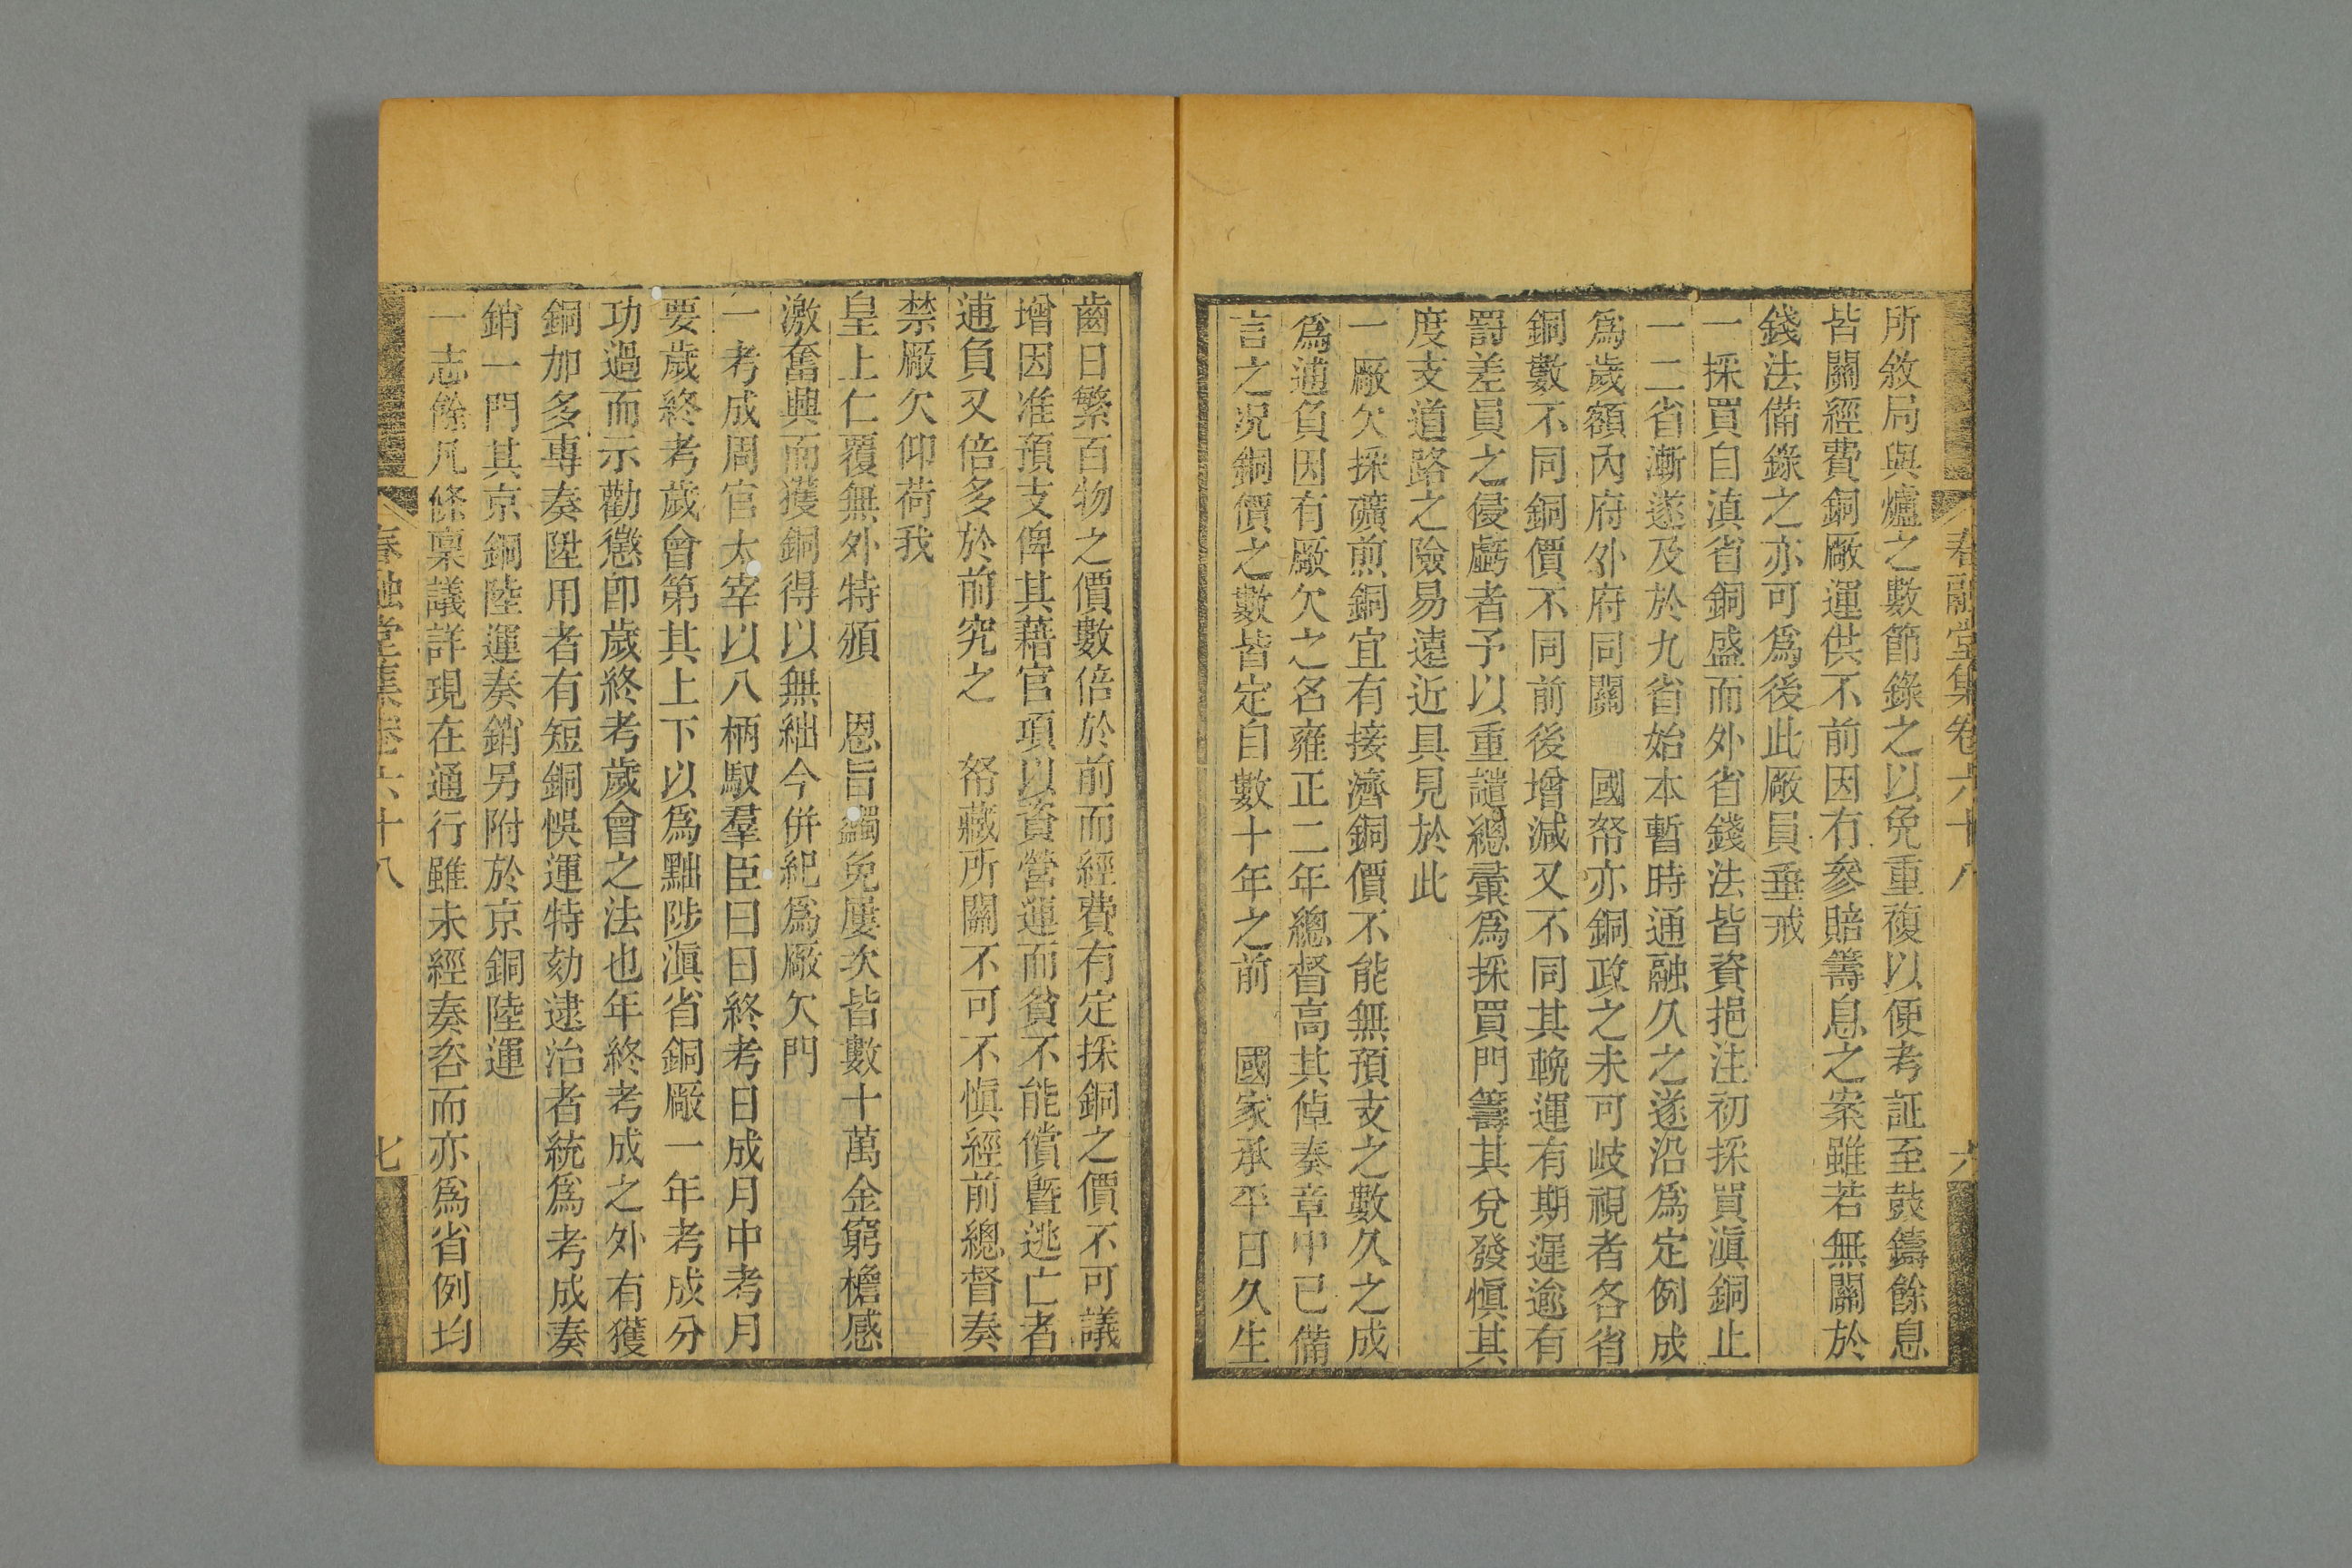 春融堂集卷六十八
六
所敘局與爐之數節錄之以免重複以便考証至鼓鑄餘息
皆關經費銅厰運供不前因有參賠籌息之案雖若無關於
錢法備錄之亦可爲後此厰員垂戒
一採買自滇省銅盛而外省錢法皆資挹注初採買滇銅止
一二省漸遂及於九省始本暫時通融久之遂沿爲定例成
爲歲額內府外府同關　國帑亦銅政之未可岐視者各省
銅數不同銅價不同前後增減又不同其輓運有期遲逾有
罸差員之侵虧者予以重譴總彚爲採買門籌其兌發愼其
度支道路之險易遠近具見於此
一厰欠採礦煎銅宜有接濟銅價不能無預支之數久之成
爲逋負因有厰欠之名雍正二年總督高其倬奏章中已備
言之况銅價之數皆定自數十年之前　國家承平日久生
齒日繁百物之價數倍於前而經費有定採銅之價不可議
增因准預支俾其藉官項以資營運而貧不能償曁逃亡者
逋負又倍多於前究之　帑藏所關不可不愼經前總督奏
禁厰欠仰荷我
皇上仁覆無外特頒　恩旨蠲免屢次皆數十萬金窮檐感
激奮興而獲銅得以無絀今併紀爲厰欠門
一考成周官太宰以八柄馭羣臣曰日終考日成月中考月
要歲終考歲會第其上下以爲黜陟滇省銅厰一年考成分
功過而示勸懲卽歲終考歲會之法也年終考成之外有獲
銅加多專奏陞用者有短銅悞運特劾逮治者統爲考成奏
銷一門其京銅陸運奏銷另附於京銅陸運
一志餘凡條稟議詳現在通行雖未經奏咨而亦爲省例均
春融堂集卷六十八
七